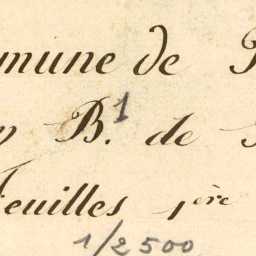 mune de
B.1 de
Feuilles 1ère
1/2500